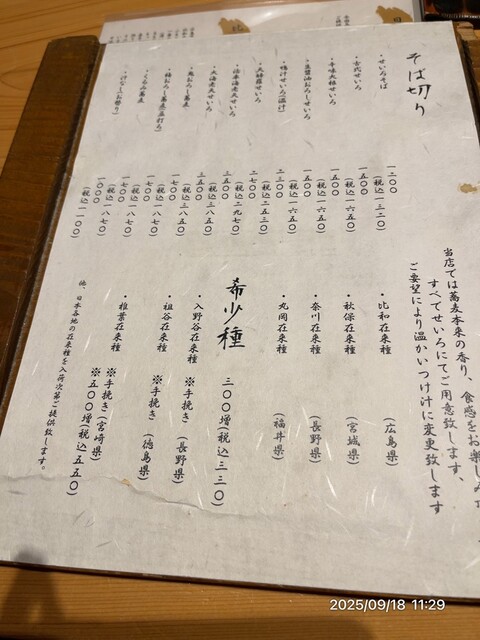 そば切り
・せいろそば
一二〇〇
(税込一三二〇)
・古代せいろ
一五〇〇
(税込一六五〇)
・辛味大根せいろ
一五〇〇
(税込一六五〇)
・生醤油おろしせいろ
一五〇〇
(税込一六五〇)
・鴨汁せいろ(温汁)
二三〇〇
(税込二五三〇)
・天麩羅せいろ
二七〇〇
(税込二九七〇)
・活車海老天せいろ
三五〇〇
(税込三八五〇)
・大海老天せいろ
三五〇〇
(税込三八五〇)
・鬼おろし蕎麦
一七〇〇
(税込一八七〇)
・梅おろし蕎麦
一七〇〇
(税込一八七〇)
・くるみ蕎麦
一七〇〇
(税込一八七〇)
一〇〇〇
(税込一一〇〇)
当店では蕎麦本来の香り、食感をお楽しみ
すべてせいろにてご用意致します、
ご要望により温かいつけ汁に変更致します
・比和在来種 (広島県)
・秋保在来種 (宮城県)
・奈川在来種 (長野県)
・丸岡在来種 (福井県)
希少種 三〇〇増(税込三三〇)
・入野谷在来種 ※手挽き (長野県)
・祖谷在来種 ※手挽き (徳島県)
・椎葉在来種 ※手挽き(宮崎県)
※五〇〇増(税込五五〇)
他、日本各地の在来種を入荷次第ご提供致します。
2025/09/18 11:29